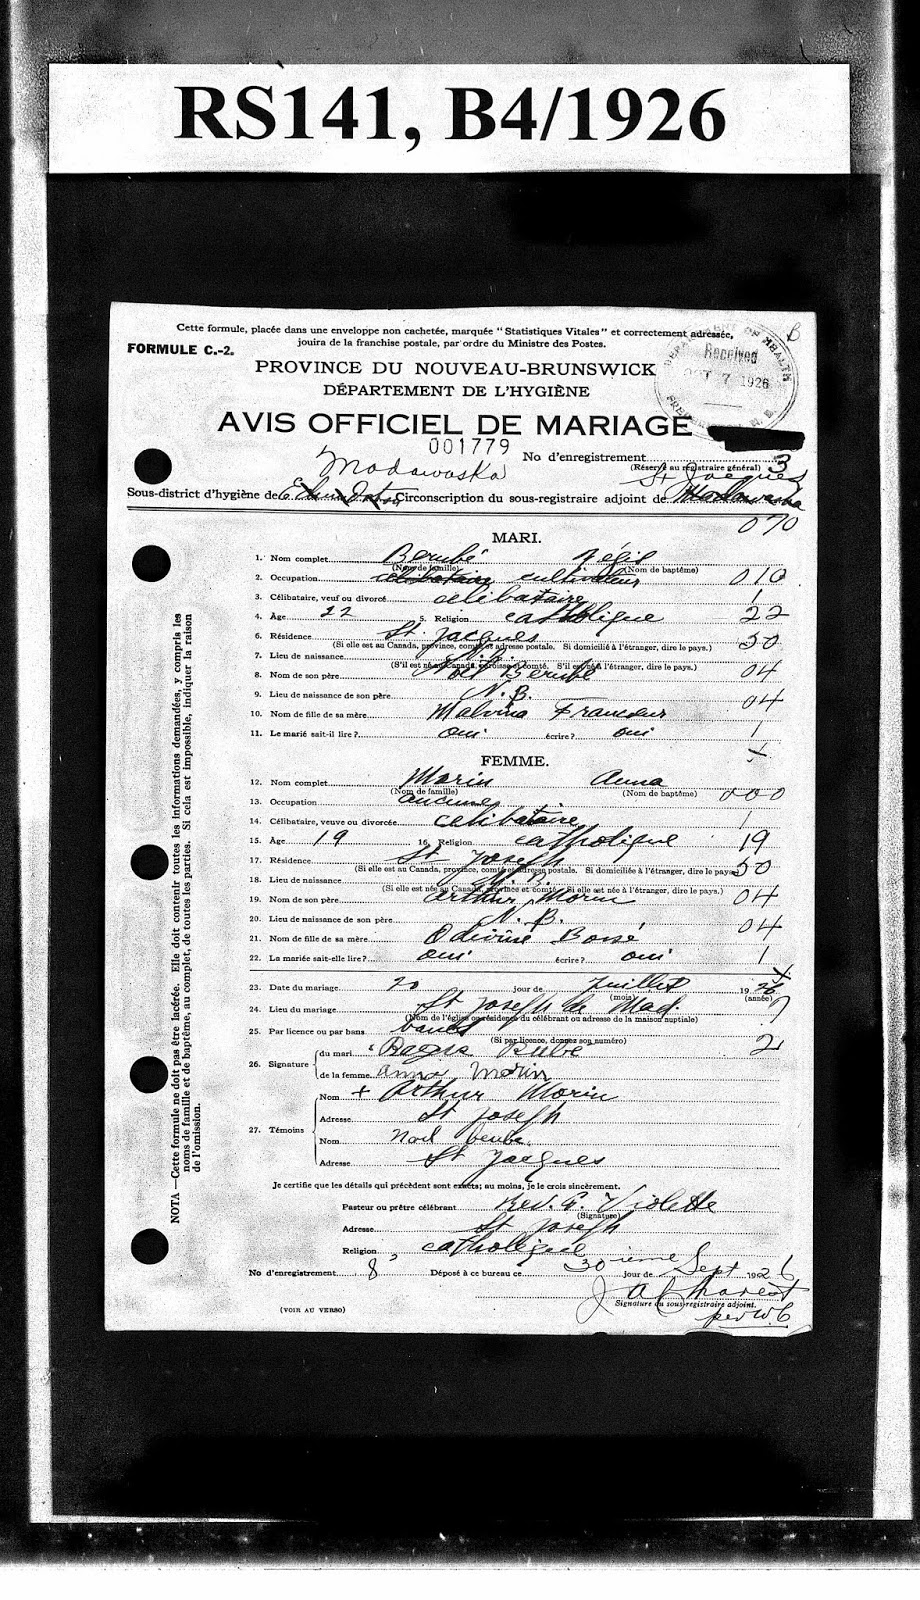 RS141, B4/1926
Cette formule, placée dans une enveloppe non cachetée, marquée "Statistiques Vitales" et correctement adressée,
jouira de la franchise postale, par ordre du Ministre des Postes.
B
FORMULE C.-2.
DEPARTMENT OF HEALTH
Received
OCT 7 1926
PROVINCE DU NOUVEAU-BRUNSWICK
DÉPARTEMENT DE L'HYGIÈNE
AVIS OFFICIEL DE MARIAGE
001779
No d'enregistrement 3
(Réservé au régistraire général)
Madawaska St Jacques
Sous-district d'hygiène de Edmundston Circonscription du sous-registraire adjoint de Madawaska
070
MARI.
1. Nom complet Berubé Régis
(Nom de famille) (Nom de baptême)
2. Occupation célibataire cultivateur 010
3. Célibataire, veuf ou divorcé célibataire 1
4. Âge 22 5. Religion catholique 22
6. Résidence St. Jacques 50
(Si elle est au Canada, province, comté et adresse postale. Si domicilié à l'étranger, dire le pays.)
7. Lieu de naissance
(S'il est né au Canada, paroisse et comté. S'il est né à l'étranger, dire le pays.) 04
8. Nom de son père Noël Berubé
9. Lieu de naissance de son père N.B. 04
10. Nom de fille de sa mère Malvina Francoeur
11. Le marié sait-il lire? oui écrire? oui 1
FEMME.
12. Nom complet Morin Anna 000
(Nom de famille) (Nom de baptême)
13. Occupation aucune
14. Célibataire, veuve ou divorcée célibataire 1
15. Age 19 16. Religion catholique 19
17. Résidence St Joseph 50
(Si elle est au Canada, province, comté et adresse postale. Si domiciliée à l'étranger, dire le pays.)
18. Lieu de naissance N.B.
(Si elle est née au Canada, province et comté. Si elle est née à l'étranger, dire le pays.)
19. Nom de son père Arthur Morin 04
20. Lieu de naissance de son père N.B. 04
21. Nom de fille de sa mère Odivine Bossé
22. La mariée sait-elle lire? oui écrire? oui 1
23. Date du mariage 20 jour de Juillet 1926
(mois) (année)
24. Lieu du mariage St Joseph de Mad 7
(Nom de l'église ou résidence du célébrant ou adresse de la maison nuptiale)
25. Par licence ou par bans bans
(Si par licence, donnez son numéro) 2
26. Signature du mari Regis Bube
de la femme Anna Morin
27. Témoins Nom + Arthur Morin
Adresse St Joseph
Nom Noel Berube
Adresse St Jacques
Je certifie que les détails qui précèdent sont exacts; au moins, je le crois sincèrement.
Pasteur ou prêtre célébrant Rev. G. Violette
(Signature)
Adresse St Joseph
Religion catholique
No d'enregistrement 8 Déposé à ce bureau ce 30ième jour de Sept 1926
Signature du sous-registraire adjoint.
per W C
(VOIR AU VERSO)
NOTA—Cette formule ne doit pas être lacérée. Elle doit contenir toutes les informations demandées, y compris les
noms de famille et de baptême, au complet, de toutes les parties. Si cela est impossible, indiquer la raison
de l'omission.